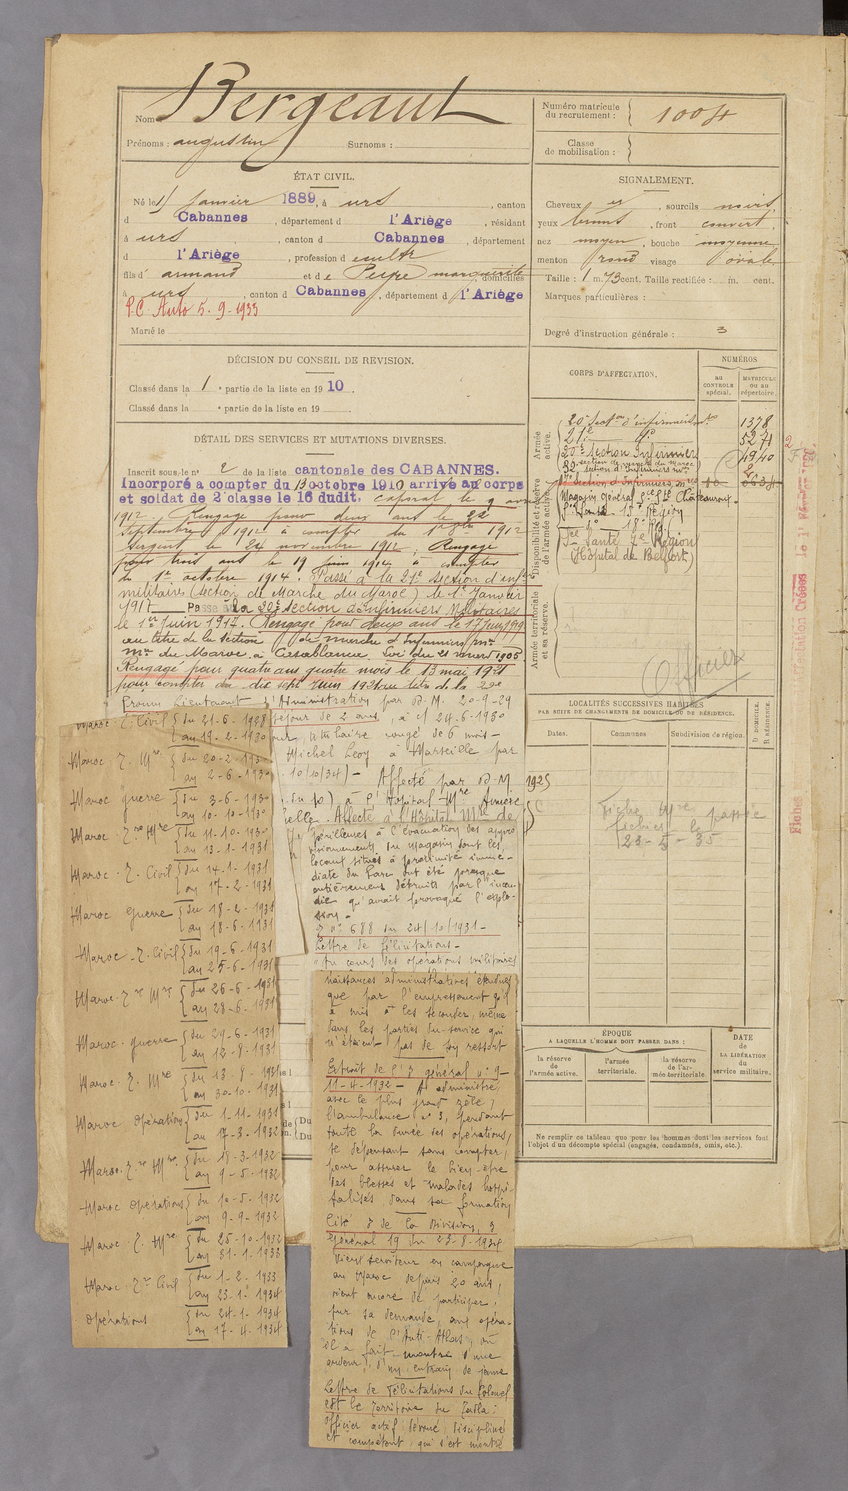 Nom Bergeaut
Prénoms : augustin Surnoms :
ÉTAT CIVIL.
Né le 1 janvier 1889, à urs, canton
d Cabannes, département d l'Ariège, résidant
à urs, canton d Cabannes, département
d l'Ariège, profession d cultr
fils d' armand et de marguerite domiciliés
à urs, canton d Cabannes, département d l'Ariège
P.C. Auto 5.9.1933
Marié le
DÉCISION DU CONSEIL DE RÉVISION.
Classé dans la 1e partie de la liste en 1910.
Classé dans la e partie de la liste en 19
DÉTAIL DES SERVICES ET MUTATIONS DIVERSES.
Inscrit sous le n° 2 de la liste cantonale des CABANNES.
Incorporé à compter du 13 octobre 1910 arrivé au corps
et soldat de 2e classe le 16 dudit, caporal le 9 avril
1912. Rengagé pour deux ans le 22
septembre 1912 à compter du 1er 8bre 1912
Sergent le 24 novembre 1912, Rengagé
pour trois ans le 19 juin 1914 à compter
du 1er octobre 1914. Passé à la 21e Section d'infrs
militaires (Section de Marche du Maroc) le 1er Janvier
1917 Passé à la 20e Section d'Infirmiers Militaires
le 1er Juin 1917. Rengagé pour deux ans le 17 Juin 1919
au titre de la section de marche d'Infirmiers mres
du Maroc à Casablanca. Loi du 21 mars 1905
Rengagé pour quatre ans quatre mois le 13 mai 1921
pour compter du dix sept Juin 1921 au titre de la 20e
Promu Lieutenant d'Administration par D.M. 20-9-29
séjour de 2 ans, à c/ 24.6.1930
titulaire congé de 6 mois -
Michel Levy à Marseille par
10/10/34) - Affecté par D.M. 1925
du 10) à l'Hôpital Mre Amélie
Affecté à l'Hôpital Mre de
Maroc Z. Civil { du 21-6-1928
au 19-2-1930
Maroc Z. Mre { du 20-2-1930
au 2-6-1930
Maroc guerre { du 3-6-1930
au 10-10-1930
Maroc Z.ne Mre { du 11-10-1930
au 13-1-1931
Maroc Z. Civil { du 14-1-1931
au 17-2-1931
Maroc guerre { du 18-2-1931
au 18-6-1931
Maroc Z. Civil { du 19-6-1931
au 25-6-1931
Maroc Z.ne Mre { du 26-6-1931
au 28-6-1931
Maroc guerre { du 29-6-1931
au 12-8-1931
Maroc Z. Mre { du 13-8-1931
au 30-10-1931
Maroc Opération { du 1-11-1931
au 17-3-1932
Maroc Z.ne Mre { du 18-3-1932
au 9-5-1932
Maroc opérations { du 10-5-1932
au 9-9-1932
Maroc Z. Mre { du 25-10-1932
au 31-1-1933
Maroc Z.ne Civil { du 1-2-1933
au 23-1-1934
opérations { du 24-1-1934
au 17-4-1934
périlleuses à l'évacuation des appro
visionnements du magasin dont les
locaux situés à proximité immé-
diate du Parc ont été presque
entièrement détruits par l'incen-
die qu'avait provoqué l'explo-
sion.
n° 688 du 24/10/1931 -
Lettre de félicitations -
"Au cours des opérations militaires
naissances administratives étendues
que par l'empressement qu'il
a mis à les seconder, même
dans les parties du service qui
n'étaient pas de son ressort
Extrait de l'O général n° 9
11-4-1932 - A administré
avec le plus grand zèle,
l'ambulance n° 3, pendant
toute la durée des opérations,
se dépensant sans compter,
pour assurer le bien-être
des blessés et malades hospi-
talisés dans sa formation
Cité O de la Division,
général 19 du 23-8-1934
Vieux serviteur en campagne
au Maroc depuis 20 ans,
vient encore de participer,
sur sa demande, aux opéra-
tions de l'Anti-Atlas, où
il a fait montre d'une
ardeur, d'un entrain de jeune
Lettre de félicitations du Colonel
Ct le Territoire du Tadla :
officier actif dévoué discipliné
et compétent qui s'est montré
Numéro matricule
du recrutement : } 1004
Classe
de mobilisation : }
SIGNALEMENT.
Cheveux , sourcils noirs
yeux bruns, front couvert,
nez moyen, bouche moyenne
menton rond visage ovale
Taille : 1 m. 73 cent. Taille rectifiée : m. cent.
Marques particulières :
Degré d'instruction générale : 3
CORPS D'AFFECTATION.
NUMÉROS
AU CONTRÔLE spécial.
MATRICULE OU AU répertoire.
Armée active.
20e Section d'infirmiers 1378
21e do 5271
20e Section Infirmiers 1940
Disponibilité et réserve de l'armée active.
Magasin Général Châteauroux
Se Santé Région
do 18e
Sce Santé 7e Région
(Hôpital de Belfort)
Armée territoriale et sa réserve.
Officier
LOCALITÉS SUCCESSIVES HABITÉES
PAR SUITE DE CHANGEMENTS DE DOMICILE OU DE RÉSIDENCE.
Dates. Communes Subdivision de région. D. DOMICILE. R. RÉSIDENCE.
Fiche Mre passée
fichier le
23-5-35
ÉPOQUE
A LAQUELLE L'HOMME DOIT PASSER DANS :
la réserve de l'armée active.
l'armée territoriale.
la réserve de l'armée territoriale
DATE
de
LA LIBÉRATION
du
service militaire.
Ne remplir ce tableau que pour les hommes dont les services font
l'objet d'un décompte spécial (engagés, condamnés, omis, etc.).